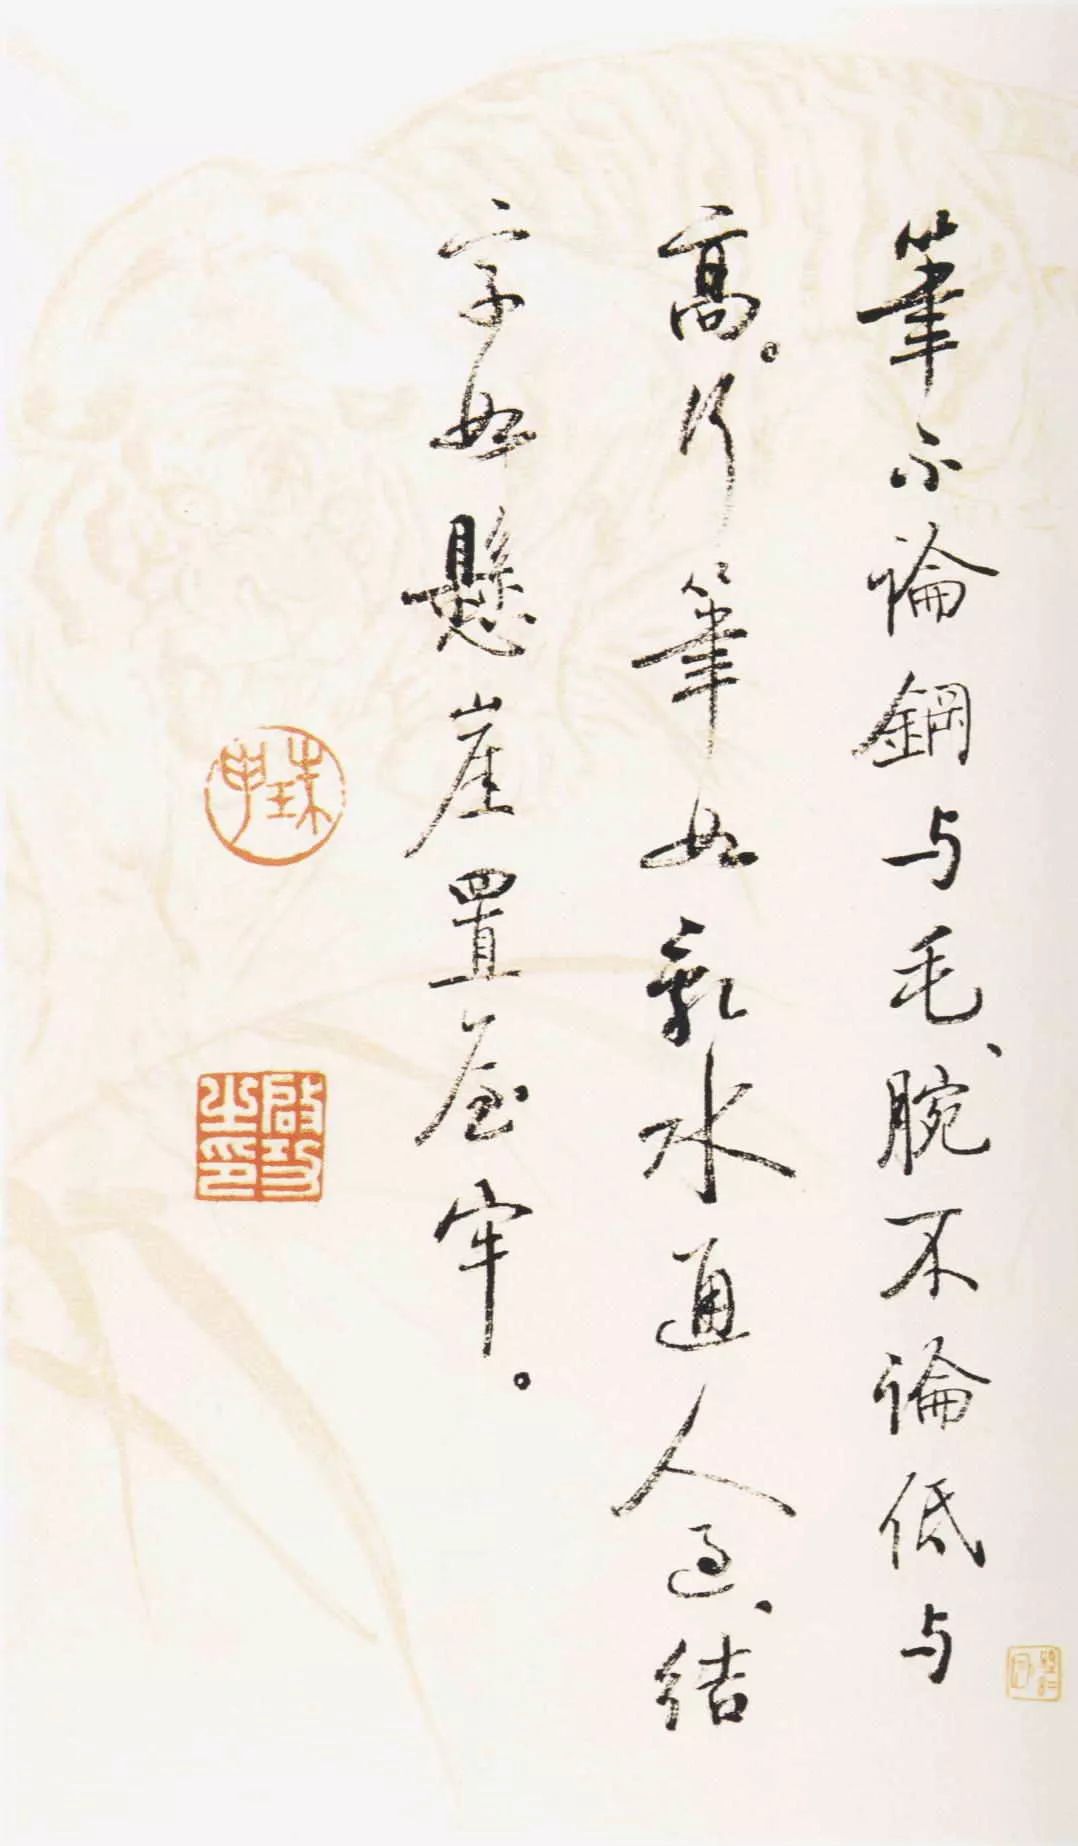 筆不論鋼与毛、腕不論低与
高。行筆如亂水通人過、結
字如懸崖置屋牢。
珠申
啟功之印